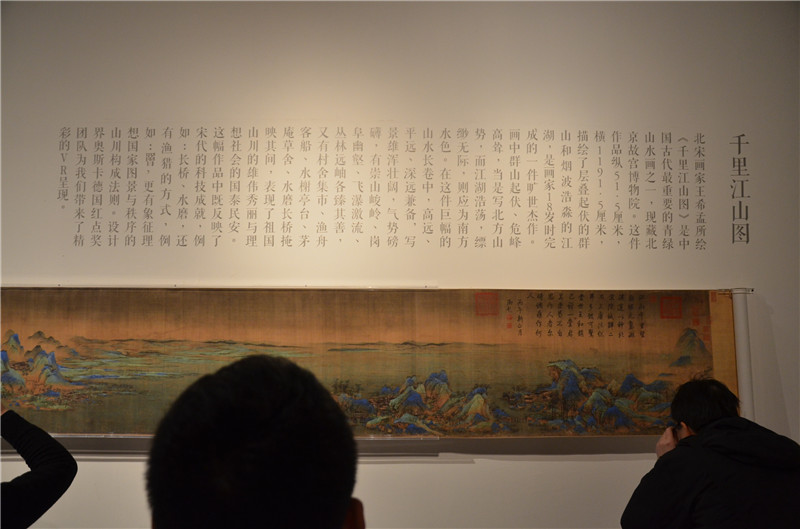 千里江山图
北宋画家王希孟所绘
《千里江山图》是中
国古代最重要的青绿
山水画之一，现藏北
京故宫博物院。这件
作品纵51.5厘米，
横1191.5厘米，
描绘了层叠起伏的群
山和烟波浩淼的江
湖，是画家18岁时完
成的一件旷世杰作。
画中群山起伏、危峰
高耸，当是写北方山
势，而江湖浩荡，缥
缈无际，则应为南方
水色。在这件巨幅的
山水长卷中，高远、
平远、深远兼备，写
景雄浑壮阔，气势磅
礴，有崇山峻岭、岗
阜幽壑、飞瀑激流、
丛林远岫各臻其善，
又有村舍集市、渔舟
客船、水榭亭台、茅
庵草舍、水磨长桥掩
映其间，表现了祖国
山川的雄伟秀丽与理
想社会的国泰民安。
这幅作品中既反映了
宋代的科技成就，例
如：长桥，水磨，还
有渔猎的方式，例
如：罾，更有象征理
想国家图景与秩序的
山川构成法则。设计
界奥斯卡德国红点奖
团队为我们带来了精
彩的VR呈现。